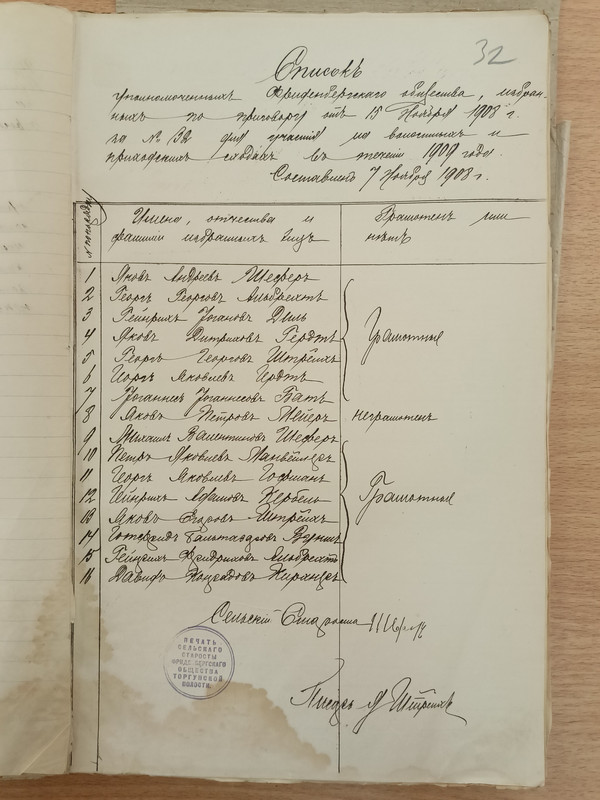 32
Списокъ
уполномоченныхъ Фриденбергскаго общества, избран-
ныхъ по приговору отъ 15 Ноября 1908 г.
за № 32 для участія на волостныхъ и
приходскихъ сходахъ въ теченіи 1909 года.
Составленъ 7 Ноября 1908 г.
Имена, отчества и Грамотенъ или
фамиліи избранныхъ лицъ нѣтъ
1 Яковъ Андреевъ Шеферъ
2 Георгъ Георговъ Альбрехтъ
3 Гейнрихъ Іогановъ Диль
4 Яковъ Дитриховъ Гердтъ Грамотные
5 Георгъ Георговъ Штрейхъ
6 Георгъ Яковлевъ
7 Іоганнесъ Іоганнесовъ Батъ
8 Яковъ Петровъ Мейеръ неграмотенъ
9 Михаилъ Валентиновъ Шеферъ
10 Петръ Яковлевъ
11 Георгъ Яковлевъ Гофманъ
12 Гейнрихъ Адамовъ Кербель Грамотные
13 Яковъ Егоровъ Штрейхъ
14 Готфридъ
15 Гейнрихъ Фридриховъ Альбрехтъ
16 Давидъ Конрадовъ
Сельскій Староста
ПЕЧАТЬ
СЕЛЬСКАГО
СТАРОСТЫ
ФРИДЕНБЕРГСКАГО
ОБЩЕСТВА
ТОРГУНСКОЙ
ВОЛОСТИ.
Писарь Я Штрейхъ